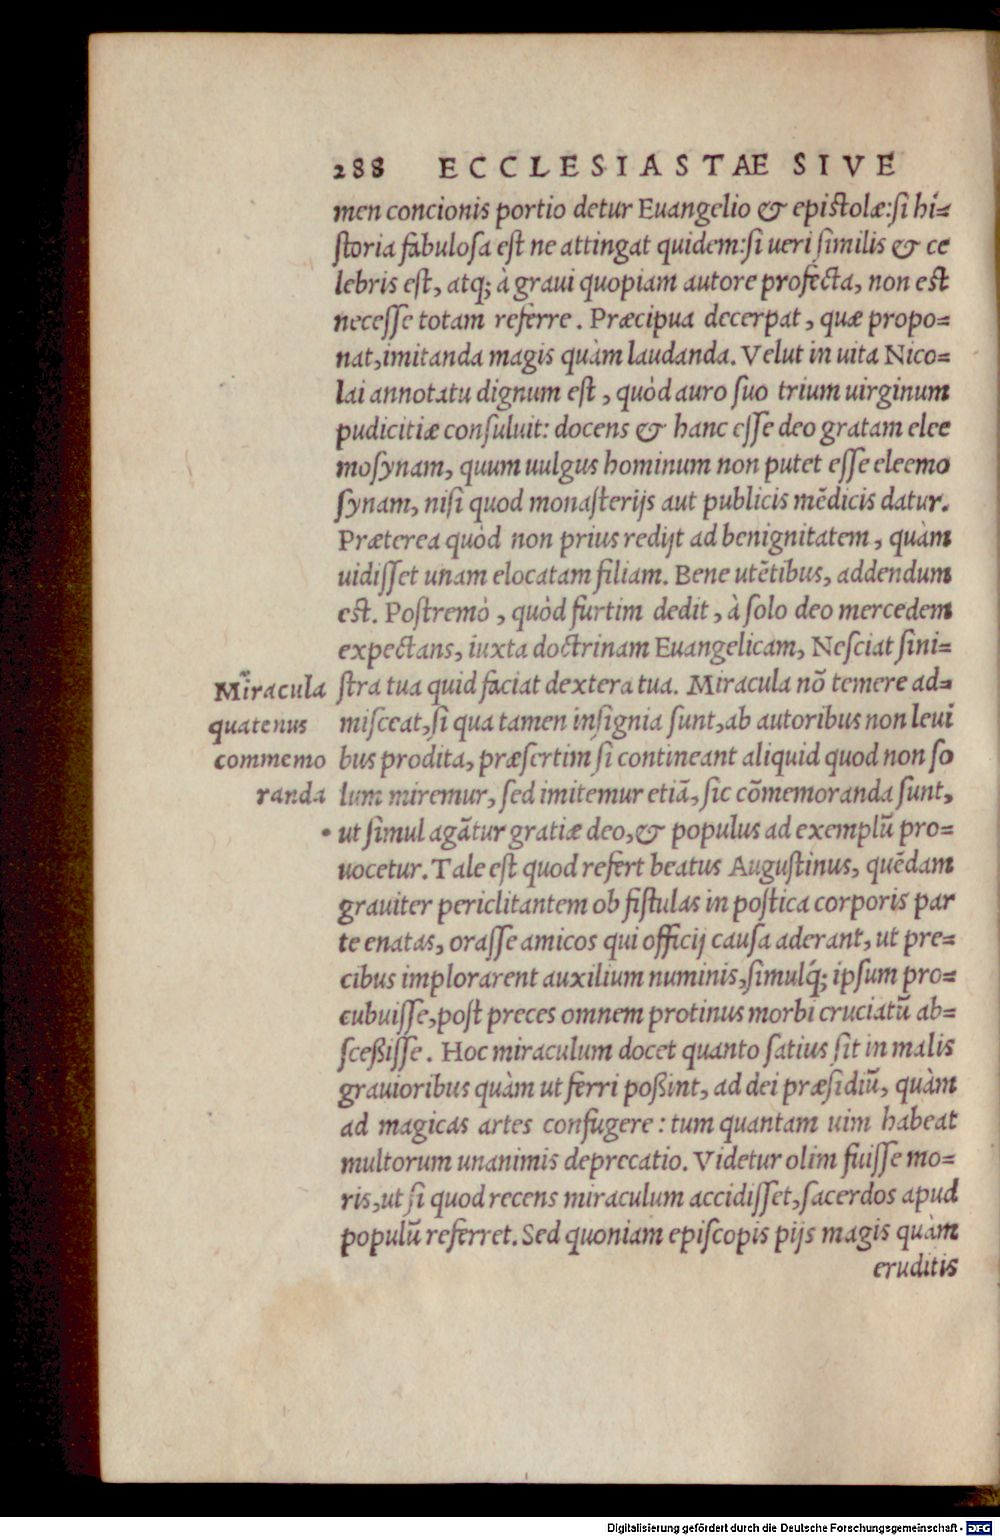 288 ECCLESIASTAE SIVE
men concionis portio detur Euangelio & epistolæ: si hi=
storia fabulosa est ne attingat quidem: si ueri similis & ce
lebris est, atq; à graui quopiam autore profecta, non est
necesse totam referre. Præcipua decerpat, quæ propo=
nat, imitanda magis quàm laudanda. Velut in uita Nico=
lai annotatu dignum est, quòd auro suo trium uirginum
pudicitiæ consuluit: docens & hanc esse deo gratam elee
mosynam, quum uulgus hominum non putet esse eleemo
synam, nisi quod monasterijs aut publicis mẽdicis datur.
Præterea quòd non prius redijt ad benignitatem, quàm
uidisset unam elocatam filiam. Bene utẽtibus, addendum
est. Postremò, quòd furtim dedit, à solo deo mercedem
expectans, iuxta doctrinam Euangelicam, Nesciat sini=
stra tua quid faciat dextera tua. Miracula nõ temere ad=
misceat, si qua tamen insignia sunt, ab autoribus non leui
bus prodita, præsertim si contineant aliquid quod non so
lum miremur, sed imitemur etiã, sic cõmemoranda sunt,
ut simul agãtur gratiæ deo, & populus ad exemplũ pro=
uocetur. Tale est quod refert beatus Augustinus, quẽdam
grauiter periclitantem ob fistulas in postica corporis par
te enatas, orasse amicos qui officij causa aderant, ut pre=
cibus implorarent auxilium numinis, simulq́; ipsum pro=
cubuisse, post preces omnem protinus morbi cruciatũ ab=
sceßisse. Hoc miraculum docet quanto satius sit in malis
grauioribus quàm ut ferri poßint, ad dei præsidiũ, quàm
ad magicas artes confugere: tum quantam uim habeat
multorum unanimis deprecatio. Videtur olim fuisse mo=
ris, ut si quod recens miraculum accidisset, sacerdos apud
populũ referret. Sed quoniam episcopis pijs magis quàm
eruditis
Miracula
quatenus
commemo
randa
Digitalisierung gefördert durch die Deutsche Forschungsgemeinschaft - DFG